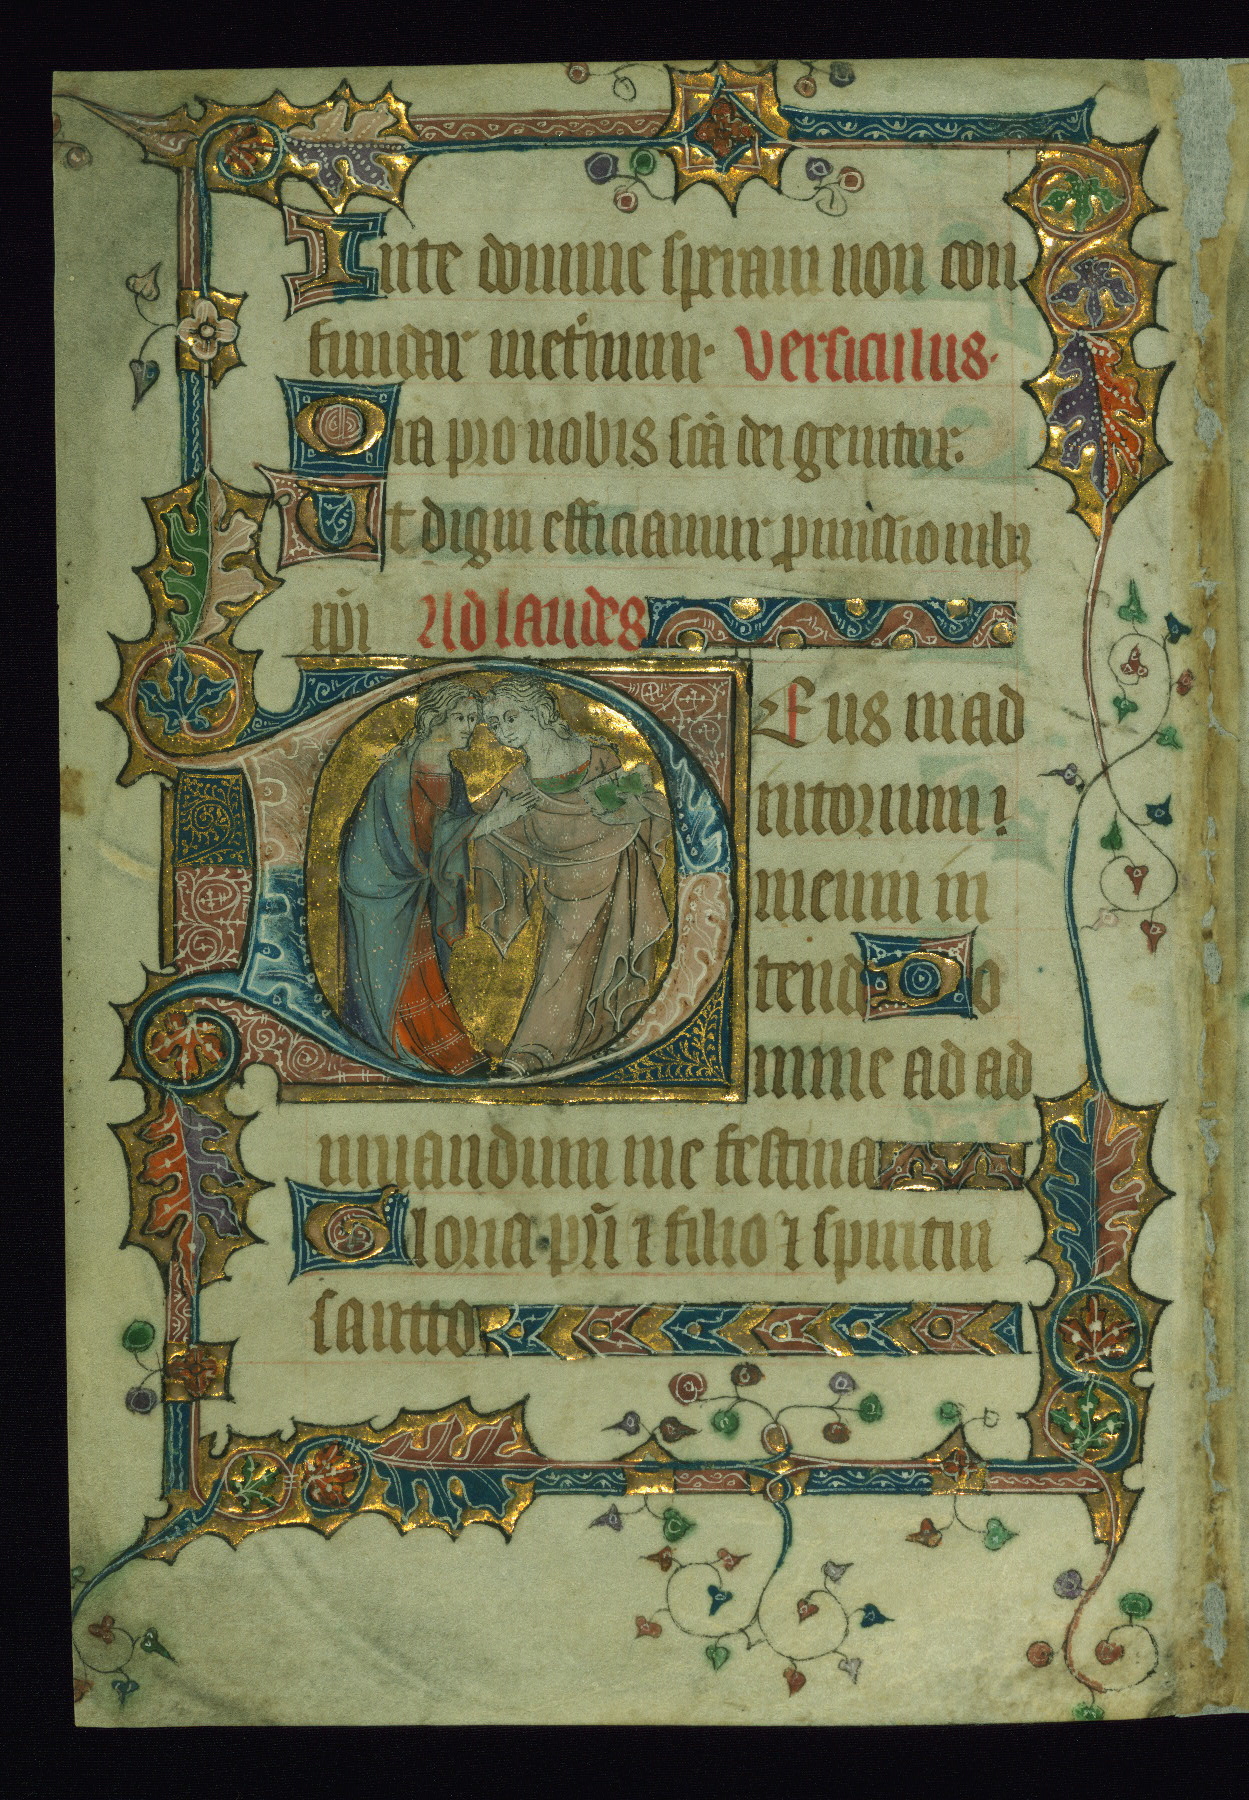 Inte domine speraui non con
fundar inet̾num· Versiculus·
Ora pro nobis sc̃a dei genitrix·
Ut digni efficiamur ꝓmissionibꝫ
xp̃i Ad laudes
Deus in ad
iutorium
meum in
tende Do
mine ad ad
iuuandum me festina
Gloria pr̃i ⁊ filio ⁊ spiritui
sancto